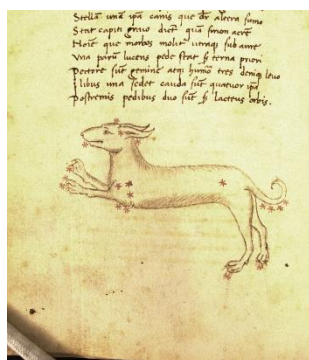 Stella una ipa canis que dr alecra sumo
Stat capiti gravo dict qua sirion acre
Noie que morbos molit utraq sub aure
Una paru lucens pede stat & terna priori
Pectore sut gemine aeqi humo tres denq levo
Ilibus una sedet cauda sut quatuor ipa
Postremis pedibus duo sut & lacteus orbis.